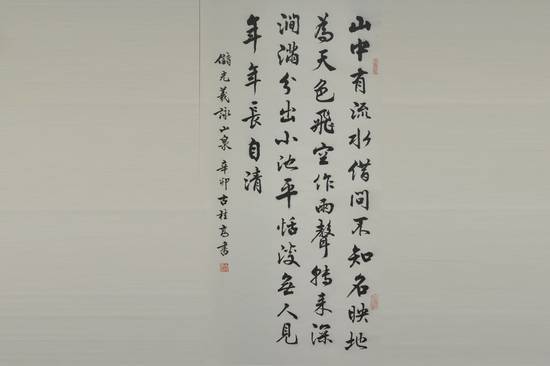 山中有流水借問不知名映地
為天色飛空作雨聲轉來深
澗滿分出小池平恬淡無人見
年年長自清
儲光羲詠山泉 辛卯 古桂高書